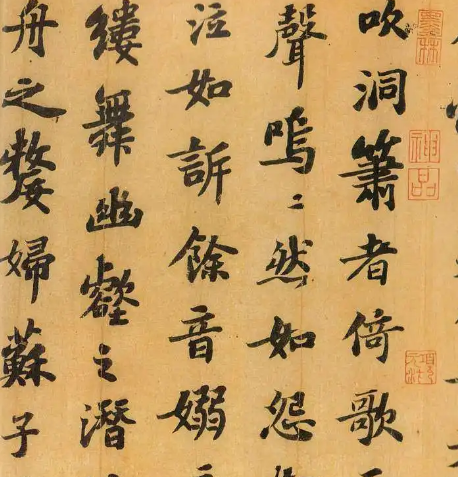 墨林
神品
吹洞簫者倚歌
聲嗚〻然如怨
泣如訴餘音嫋
縷舞幽壑之潛
舟之嫠婦蘇子